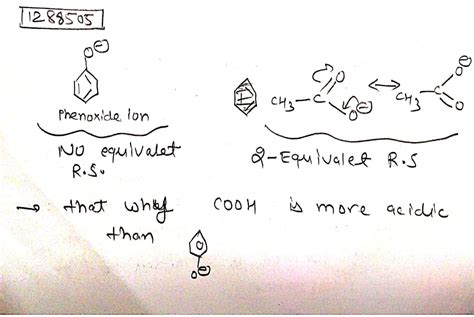 1288505
O⊖
Phenoxide Ion
NO equivalet
R.S.
CH3-C O O⊖ ↔ CH3-C O⊖ O
2-Equivalet R.S
→ that why COOH is more acidic
than
O O⊖